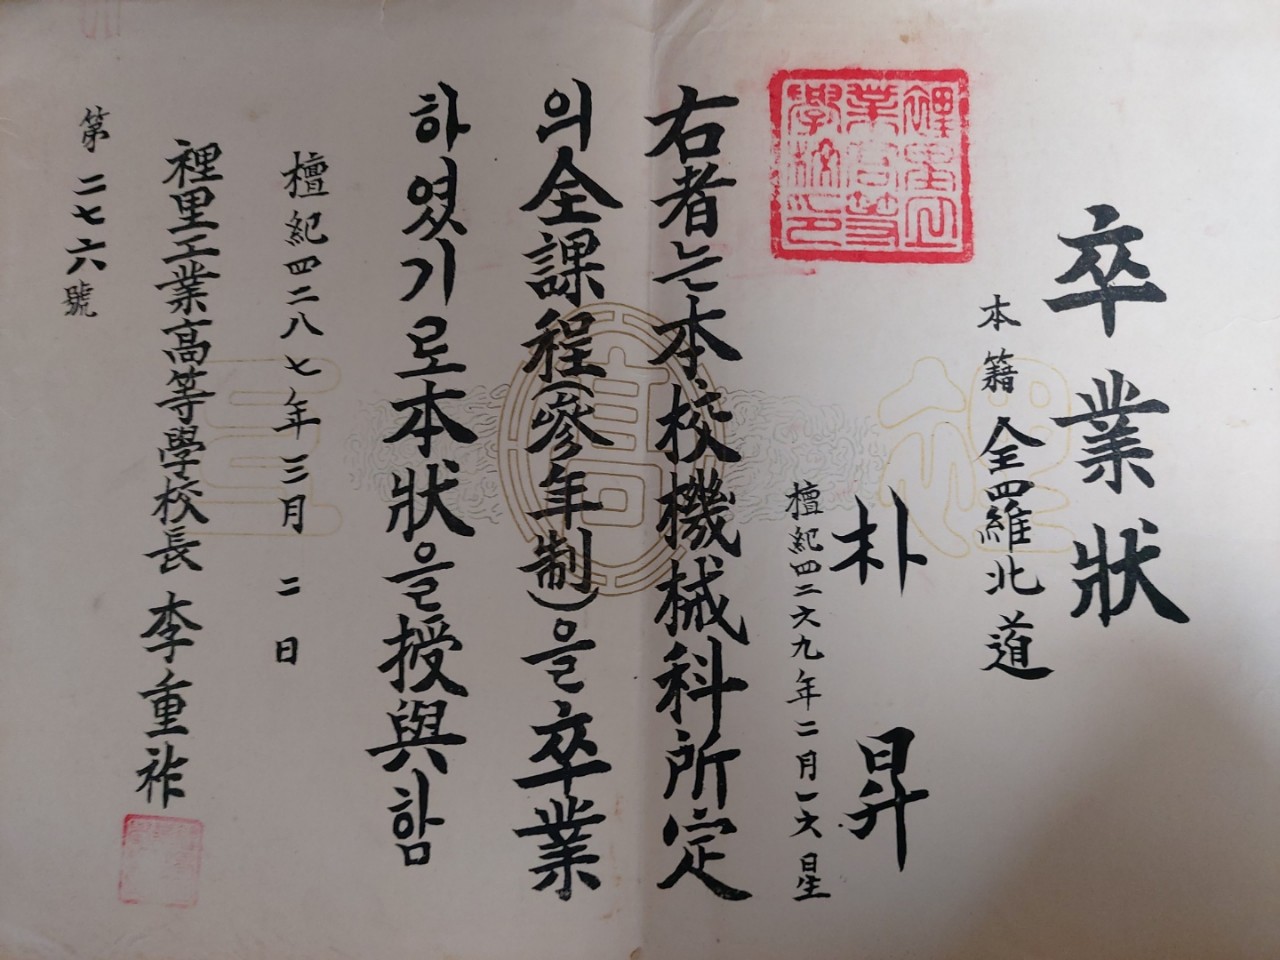 卒業狀
本籍 全羅北道
朴 昇
檀紀四二六九年二月一六日生
裡里工業高等學校印
右者는本校機械科所定
의全課程(參年制)을卒業
하였기로本狀을授與함
檀紀四二八七年三月二日
裡里工業高等學校長 李重祚
第二七六號
裡 高 工